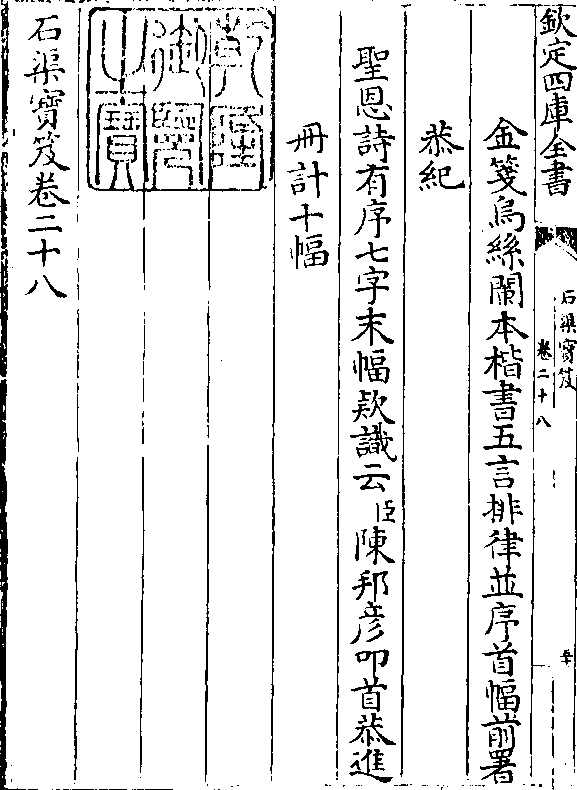 欽定四庫全書
石渠寶笈
卷二十八
金箋烏絲闌本楷書五言排律並序首幅前署
恭紀
聖恩詩有序七字末幅款識云臣陳邦彦叩首恭進
冊計十幅
乾隆
御覽
之寶
石渠寶笈卷二十八